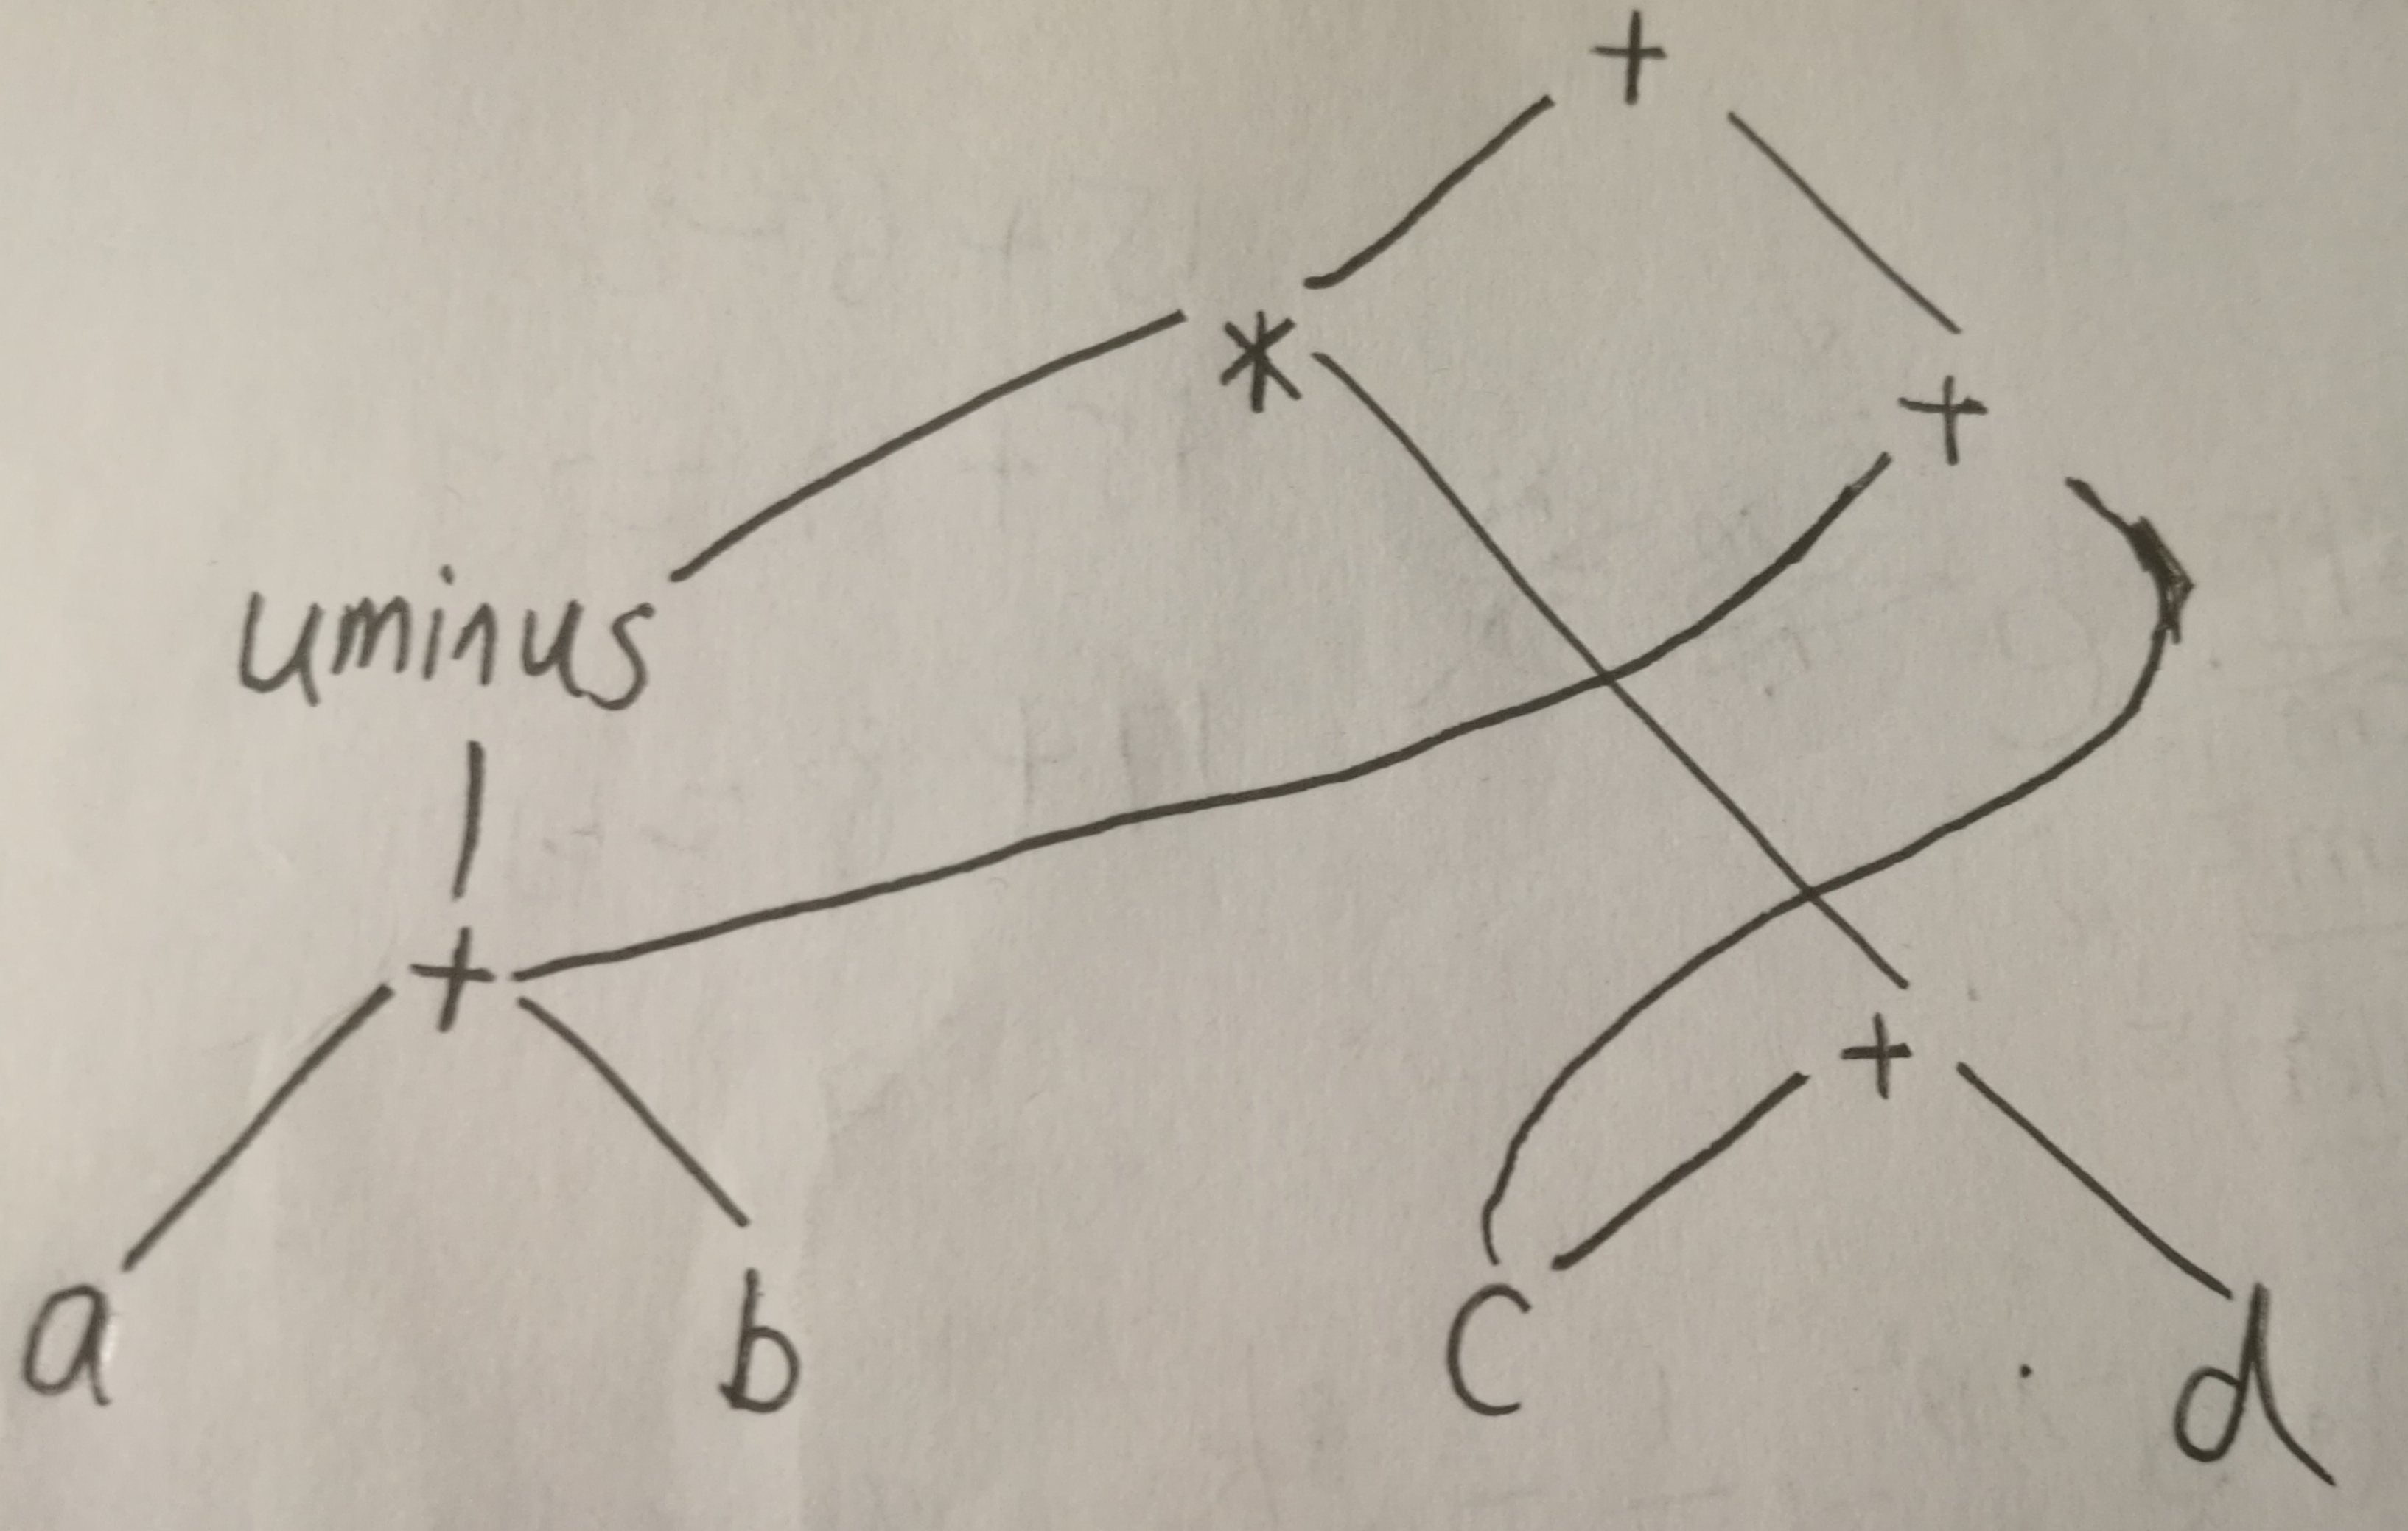 +
*
+
uminus
+
+
a b c d